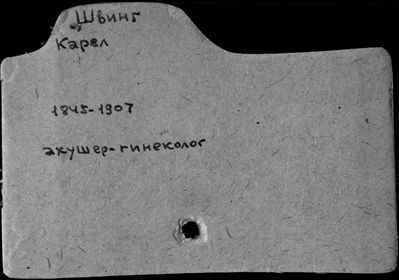 Швинг
Карел
1845-1907
акушер-гинеколог